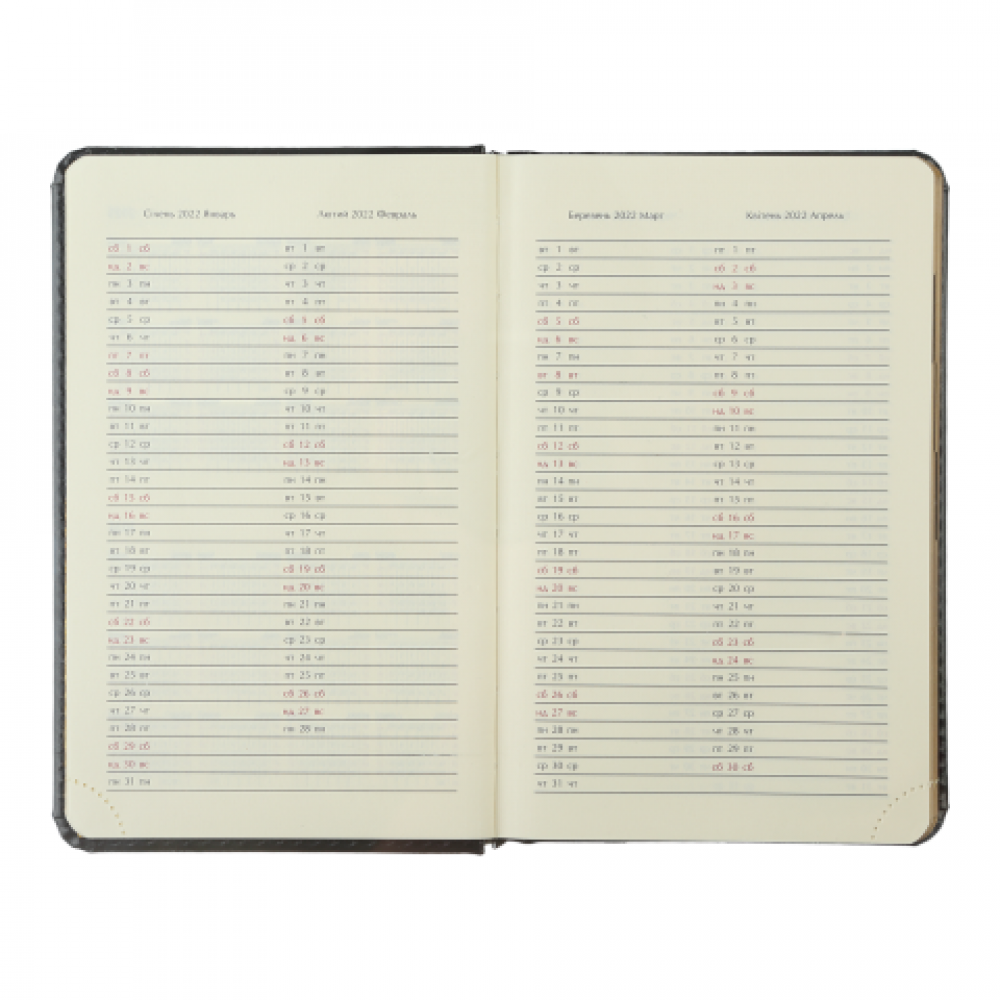 Січень 2022 Январь Лютий 2022 Февраль
сб 1 сб вт 1 вт
нд 2 вс ср 2 ср
пн 3 пн чт 3 чт
вт 4 вт пт 4 пт
ср 5 ср сб 5 сб
чт 6 чт нд 6 вс
пт 7 пт пн 7 пн
сб 8 сб вт 8 вт
нд 9 вс ср 9 ср
пн 10 пн чт 10 чт
вт 11 вт пт 11 пт
ср 12 ср сб 12 сб
чт 13 чт нд 13 вс
пт 14 пт пн 14 пн
сб 15 сб вт 15 вт
нд 16 вс ср 16 ср
пн 17 пн чт 17 чт
вт 18 вт пт 18 пт
ср 19 ср сб 19 сб
чт 20 чт нд 20 вс
пт 21 пт пн 21 пн
сб 22 сб вт 22 вт
нд 23 вс ср 23 ср
пн 24 пн чт 24 чт
вт 25 вт пт 25 пт
ср 26 ср сб 26 сб
чт 27 чт нд 27 вс
пт 28 пт пн 28 пн
сб 29 сб
нд 30 вс
пн 31 пн
Березень 2022 Март Квітень 2022 Апрель
вт 1 вт пт 1 пт
ср 2 ср сб 2 сб
чт 3 чт нд 3 вс
пт 4 пт пн 4 пн
сб 5 сб вт 5 вт
нд 6 вс ср 6 ср
пн 7 пн чт 7 чт
вт 8 вт пт 8 пт
ср 9 ср сб 9 сб
чт 10 чт нд 10 вс
пт 11 пт пн 11 пн
сб 12 сб вт 12 вт
нд 13 вс ср 13 ср
пн 14 пн чт 14 чт
вт 15 вт пт 15 пт
ср 16 ср сб 16 сб
чт 17 чт нд 17 вс
пт 18 пт пн 18 пн
сб 19 сб вт 19 вт
нд 20 вс ср 20 ср
пн 21 пн чт 21 чт
вт 22 вт пт 22 пт
ср 23 ср сб 23 сб
чт 24 чт нд 24 вс
пт 25 пт пн 25 пн
сб 26 сб вт 26 вт
нд 27 вс ср 27 ср
пн 28 пн чт 28 чт
вт 29 вт пт 29 пт
ср 30 ср сб 30 сб
чт 31 чт